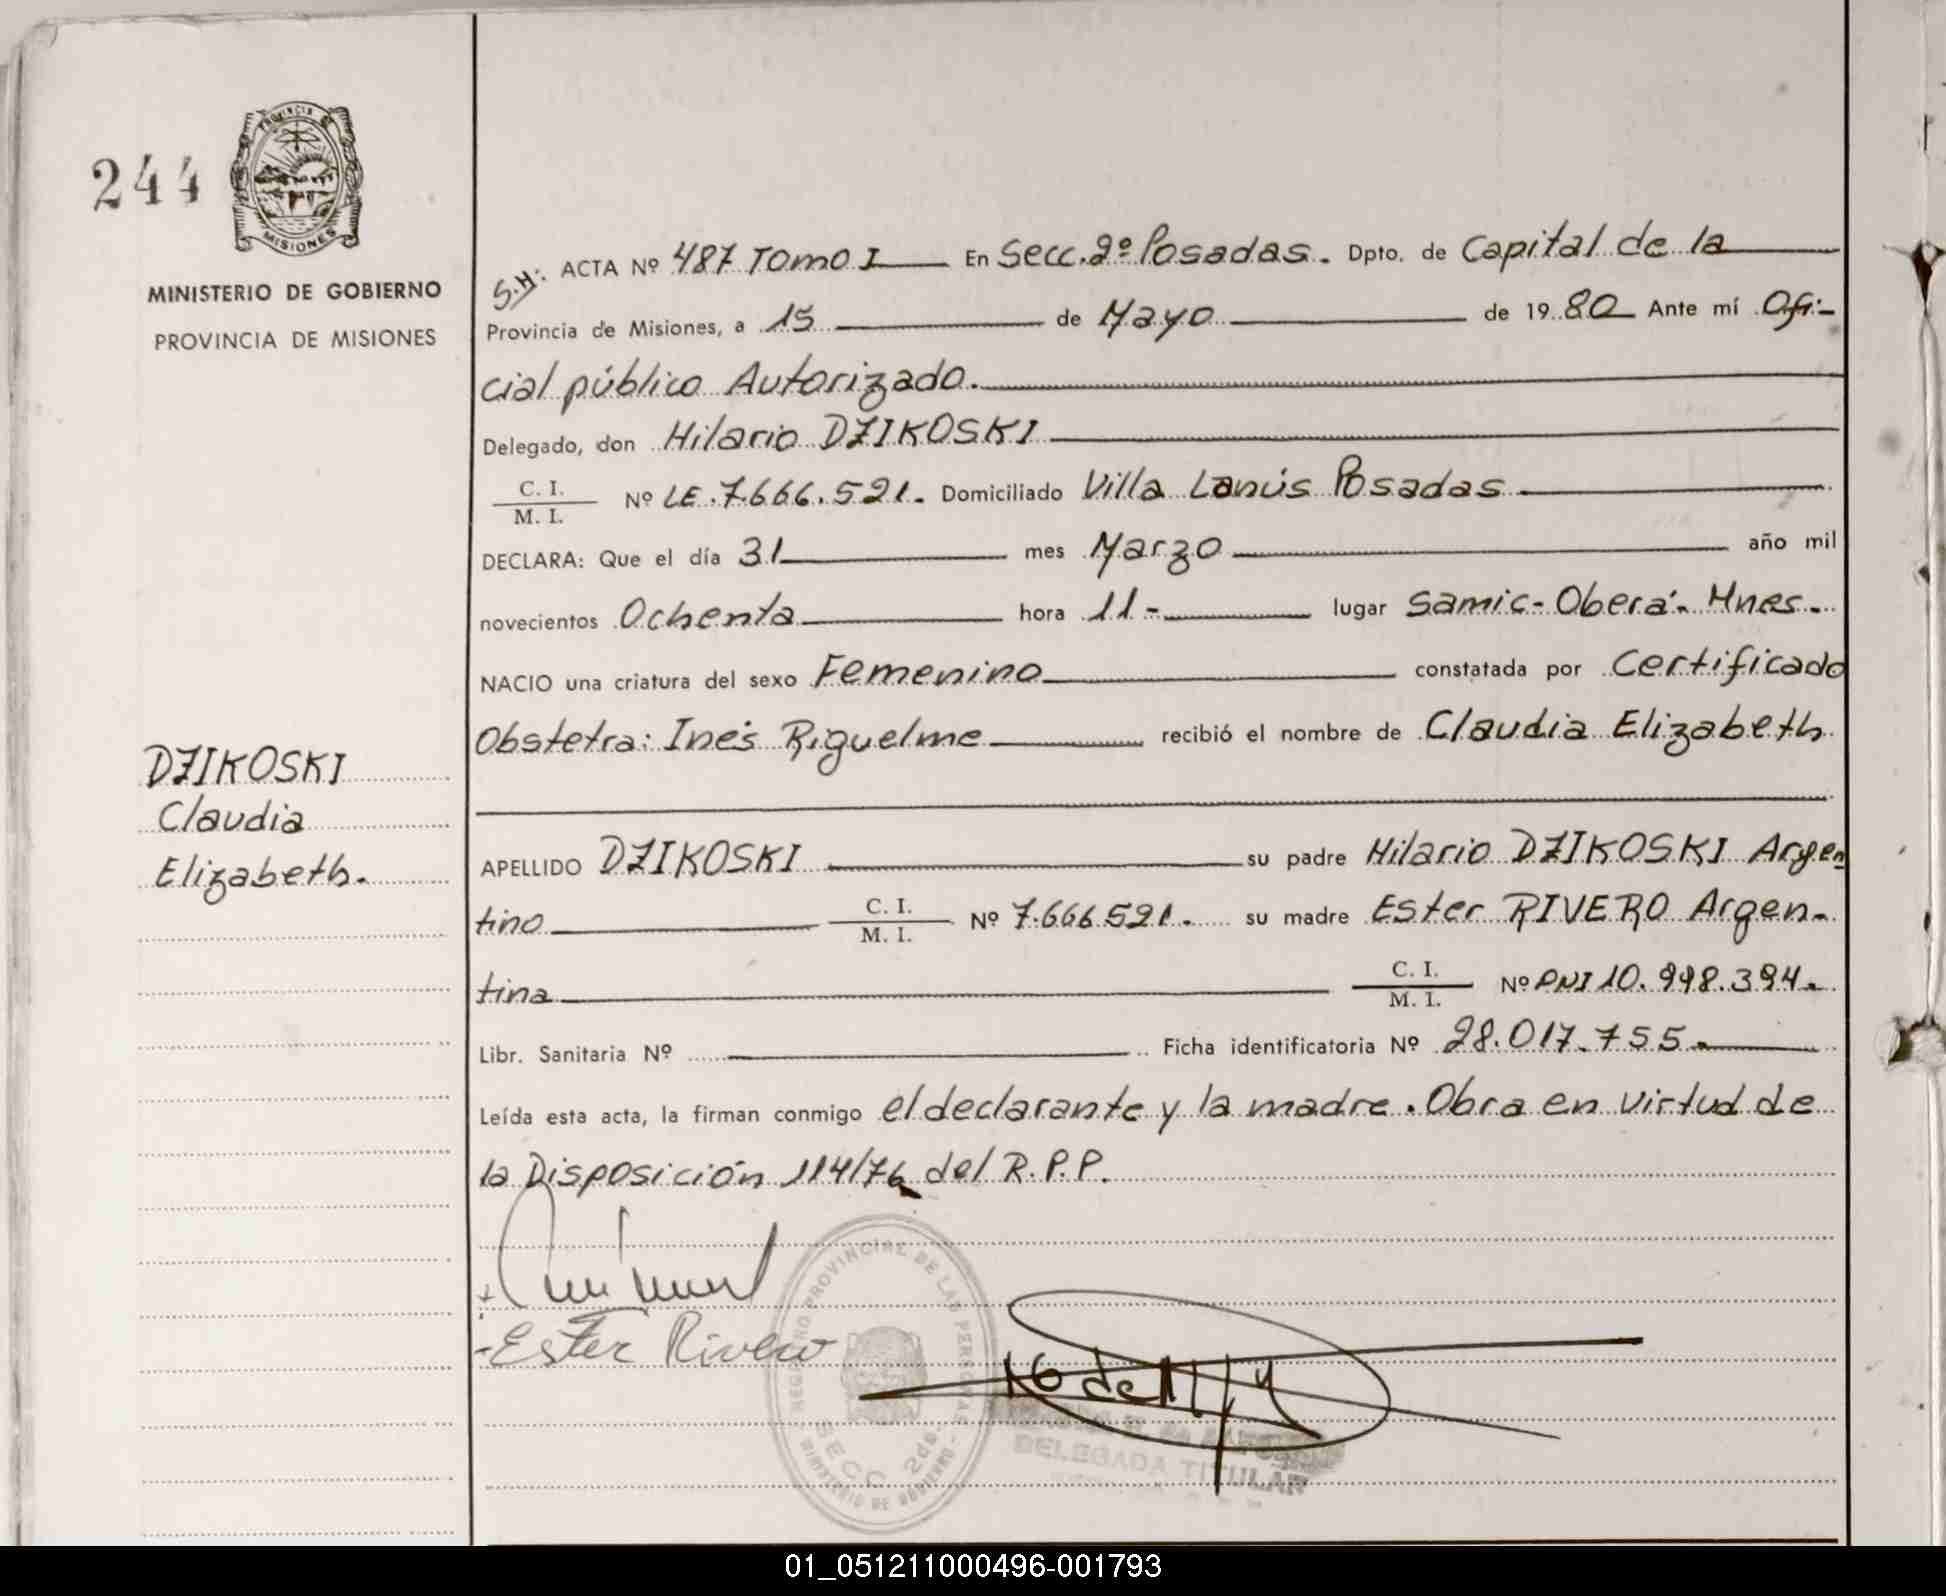 244
PROVINCIA DE
MISIONES
MINISTERIO DE GOBIERNO
PROVINCIA DE MISIONES
DZIKOSKI
Claudia
Elizabeth.
S.H: ACTA Nº 487 Tomo I En Secc. 2º Posadas. Dpto. de Capital de la
Provincia de Misiones, a 15 de Mayo de 1980 Ante mí Ofi-
cial público Autorizado.
Delegado, don Hilario DZIKOSKI
C. I.
M. I. Nº LE. 7.666.521. Domiciliado Villa Lanús Posadas
DECLARA: Que el día 31 mes Marzo año mil
novecientos Ochenta hora 11- lugar Samic-Oberá-Mnes.
NACIO una criatura del sexo Femenino constatada por Certificado
Obstetra: Inés Riquelme recibió el nombre de Claudia Elizabeth
APELLIDO DZIKOSKI su padre Hilario DZIKOSKI Argen
tino C. I.
M. I. Nº 7.666.521. su madre Ester RIVERO Argen-
tina C. I.
M. I. Nº DNI 10.998.394.
Libr. Sanitaria Nº Ficha identificatoria Nº 28.017.755.
Leída esta acta, la firman conmigo el declarante y la madre. Obra en virtud de
la Disposición 114/76 del R.P.P.
Ester Rivero
REGISTRO PROVINCIAL DE LAS PERSONAS
SECC. 2da.
MINISTERIO DE GOBIERNO
DELEGADA TITULAR
01_051211000496-001793